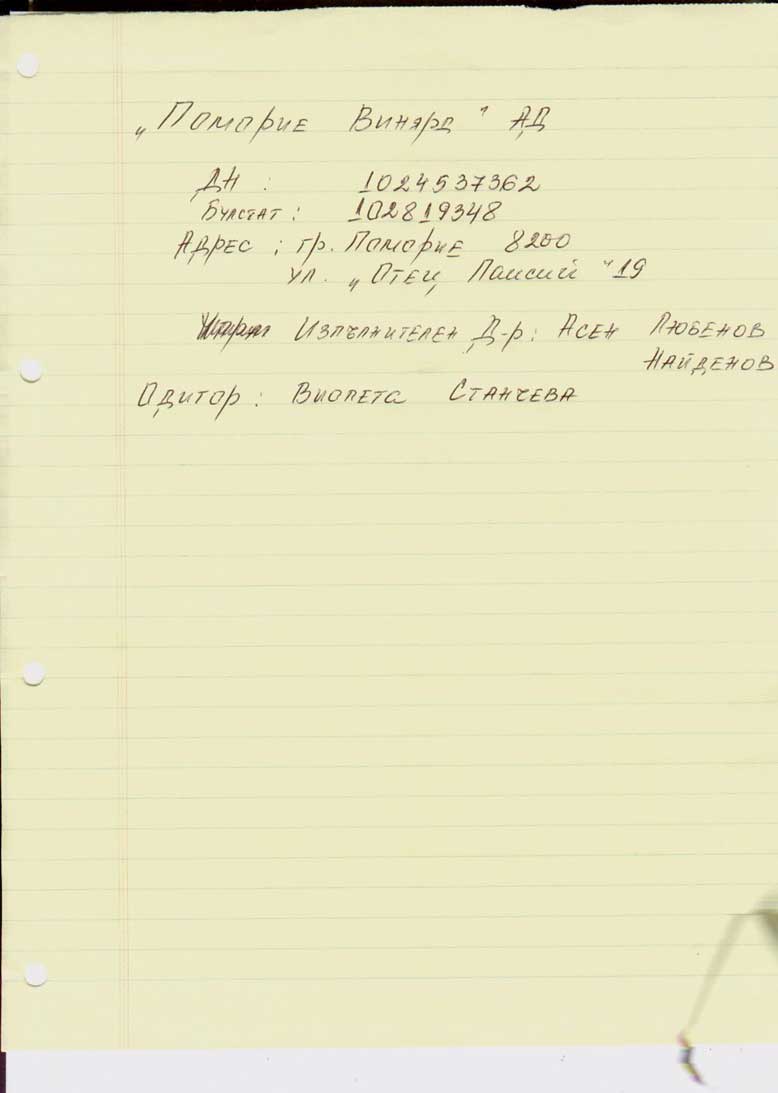 „Поморие Винярд" АД
ДН : 1024537362
Булстат : 102819348
Адрес : гр. Поморие 8200
ул. „Отец Паисий" 19
Изпълнителен Д-р : Асен Любенов
Найденов
Одитор : Виолета Станчева